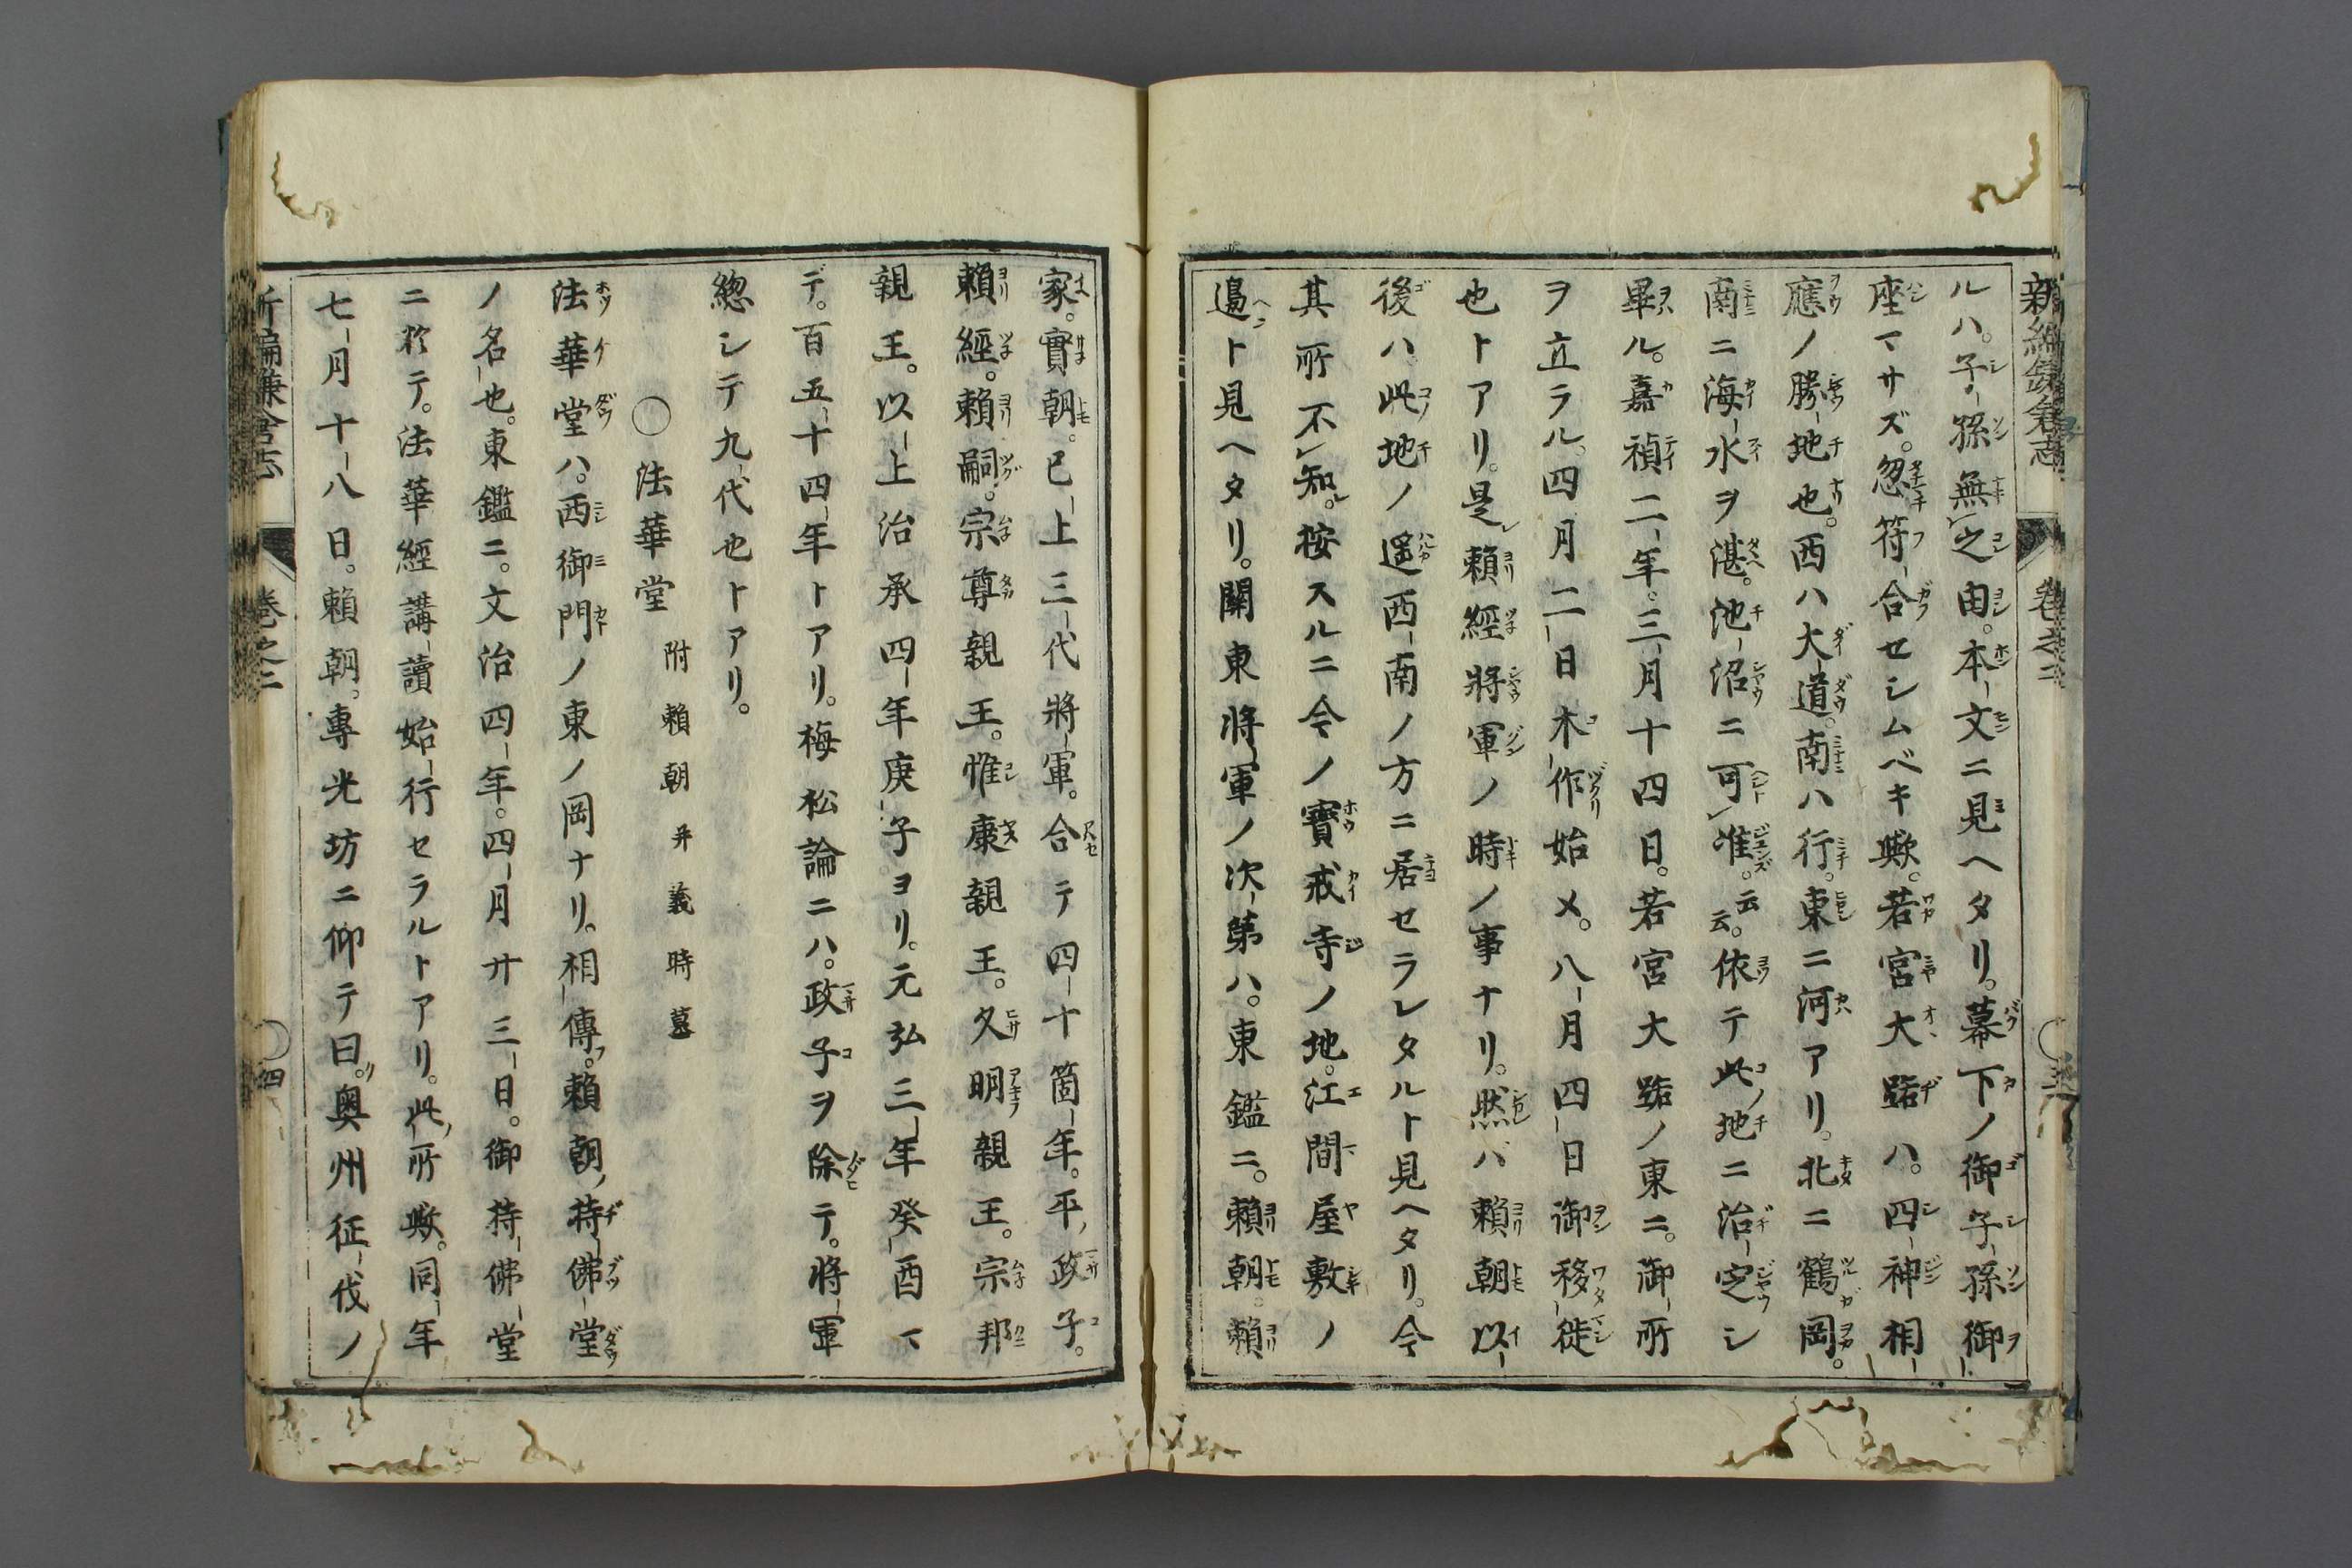 新編鎌倉志 卷之二
ルハ。子孫無之由。本文ニ見ヘタリ。幕下ノ御子孫御
座マサズ。忽符合セシムベキ歟。若宮大路ハ。四神相
應ノ勝地也。西ハ大道。南ハ行。東ニ河アリ。北ニ鶴岡。
南ニ海水ヲ湛。池沼ニ可准。云云。依テ此地ニ治定シ
畢ル。嘉禎二年。三月十四日。若宮大路ノ東ニ。御所
ヲ立ラル。四月二日木作始メ。八月四日御移徙
也トアリ。是賴經將軍ノ時ノ事ナリ。然バ賴朝以
後ハ。此地ノ遥西南ノ方ニ居セラレタルト見ヘタリ。今
其所不知。按スルニ今ノ寶戒寺ノ地。江間屋敷ノ
邉ト見ヘタリ。關東將軍ノ次第ハ。東鑑ニ。賴朝。賴
家。實朝。已上三代將軍。合テ四十箇年。平政子。
賴經。賴嗣。宗尊親王。惟康親王。久明親王。宗邦
親王。以上治承四年庚子ヨリ。元弘三年癸酉マ
デ。百五十四年トアリ。梅松論ニハ。政子ヲ除テ。將軍
緫シテ九代也トアリ。
○法華堂 附賴朝并義時墓
法華堂ハ。西御門ノ東ノ岡ナリ。相傳フ。賴朝持佛堂
ノ名也。東鑑ニ。文治四年。四月廿三日。御持佛堂
ニ於テ。法華經講讀始行セラルトアリ。此所歟。同年
七月十八日。賴朝。專光坊ニ仰テ曰。奥州征伐ノ
新編鎌倉志 卷之二 ○四